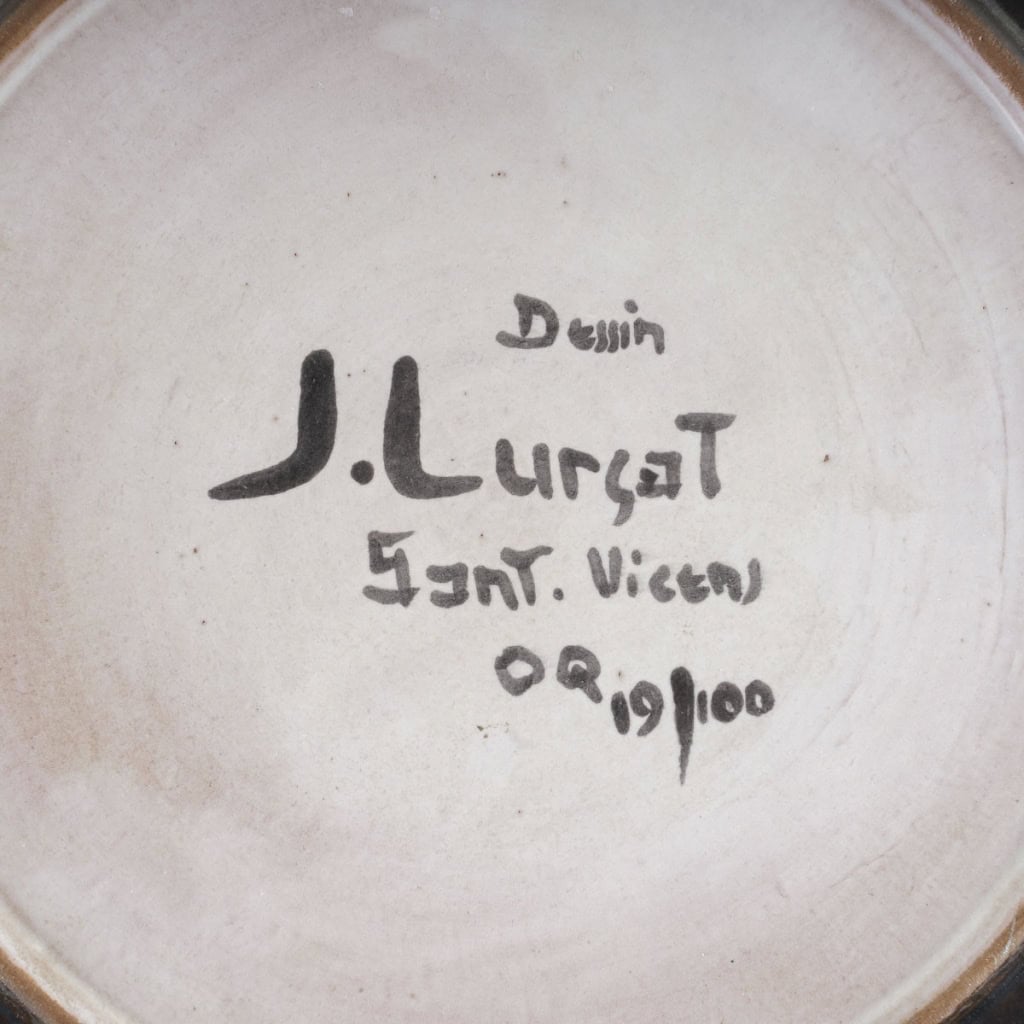 Dessin
J. Lurçat
Sant. Vicens
OQ 19/100